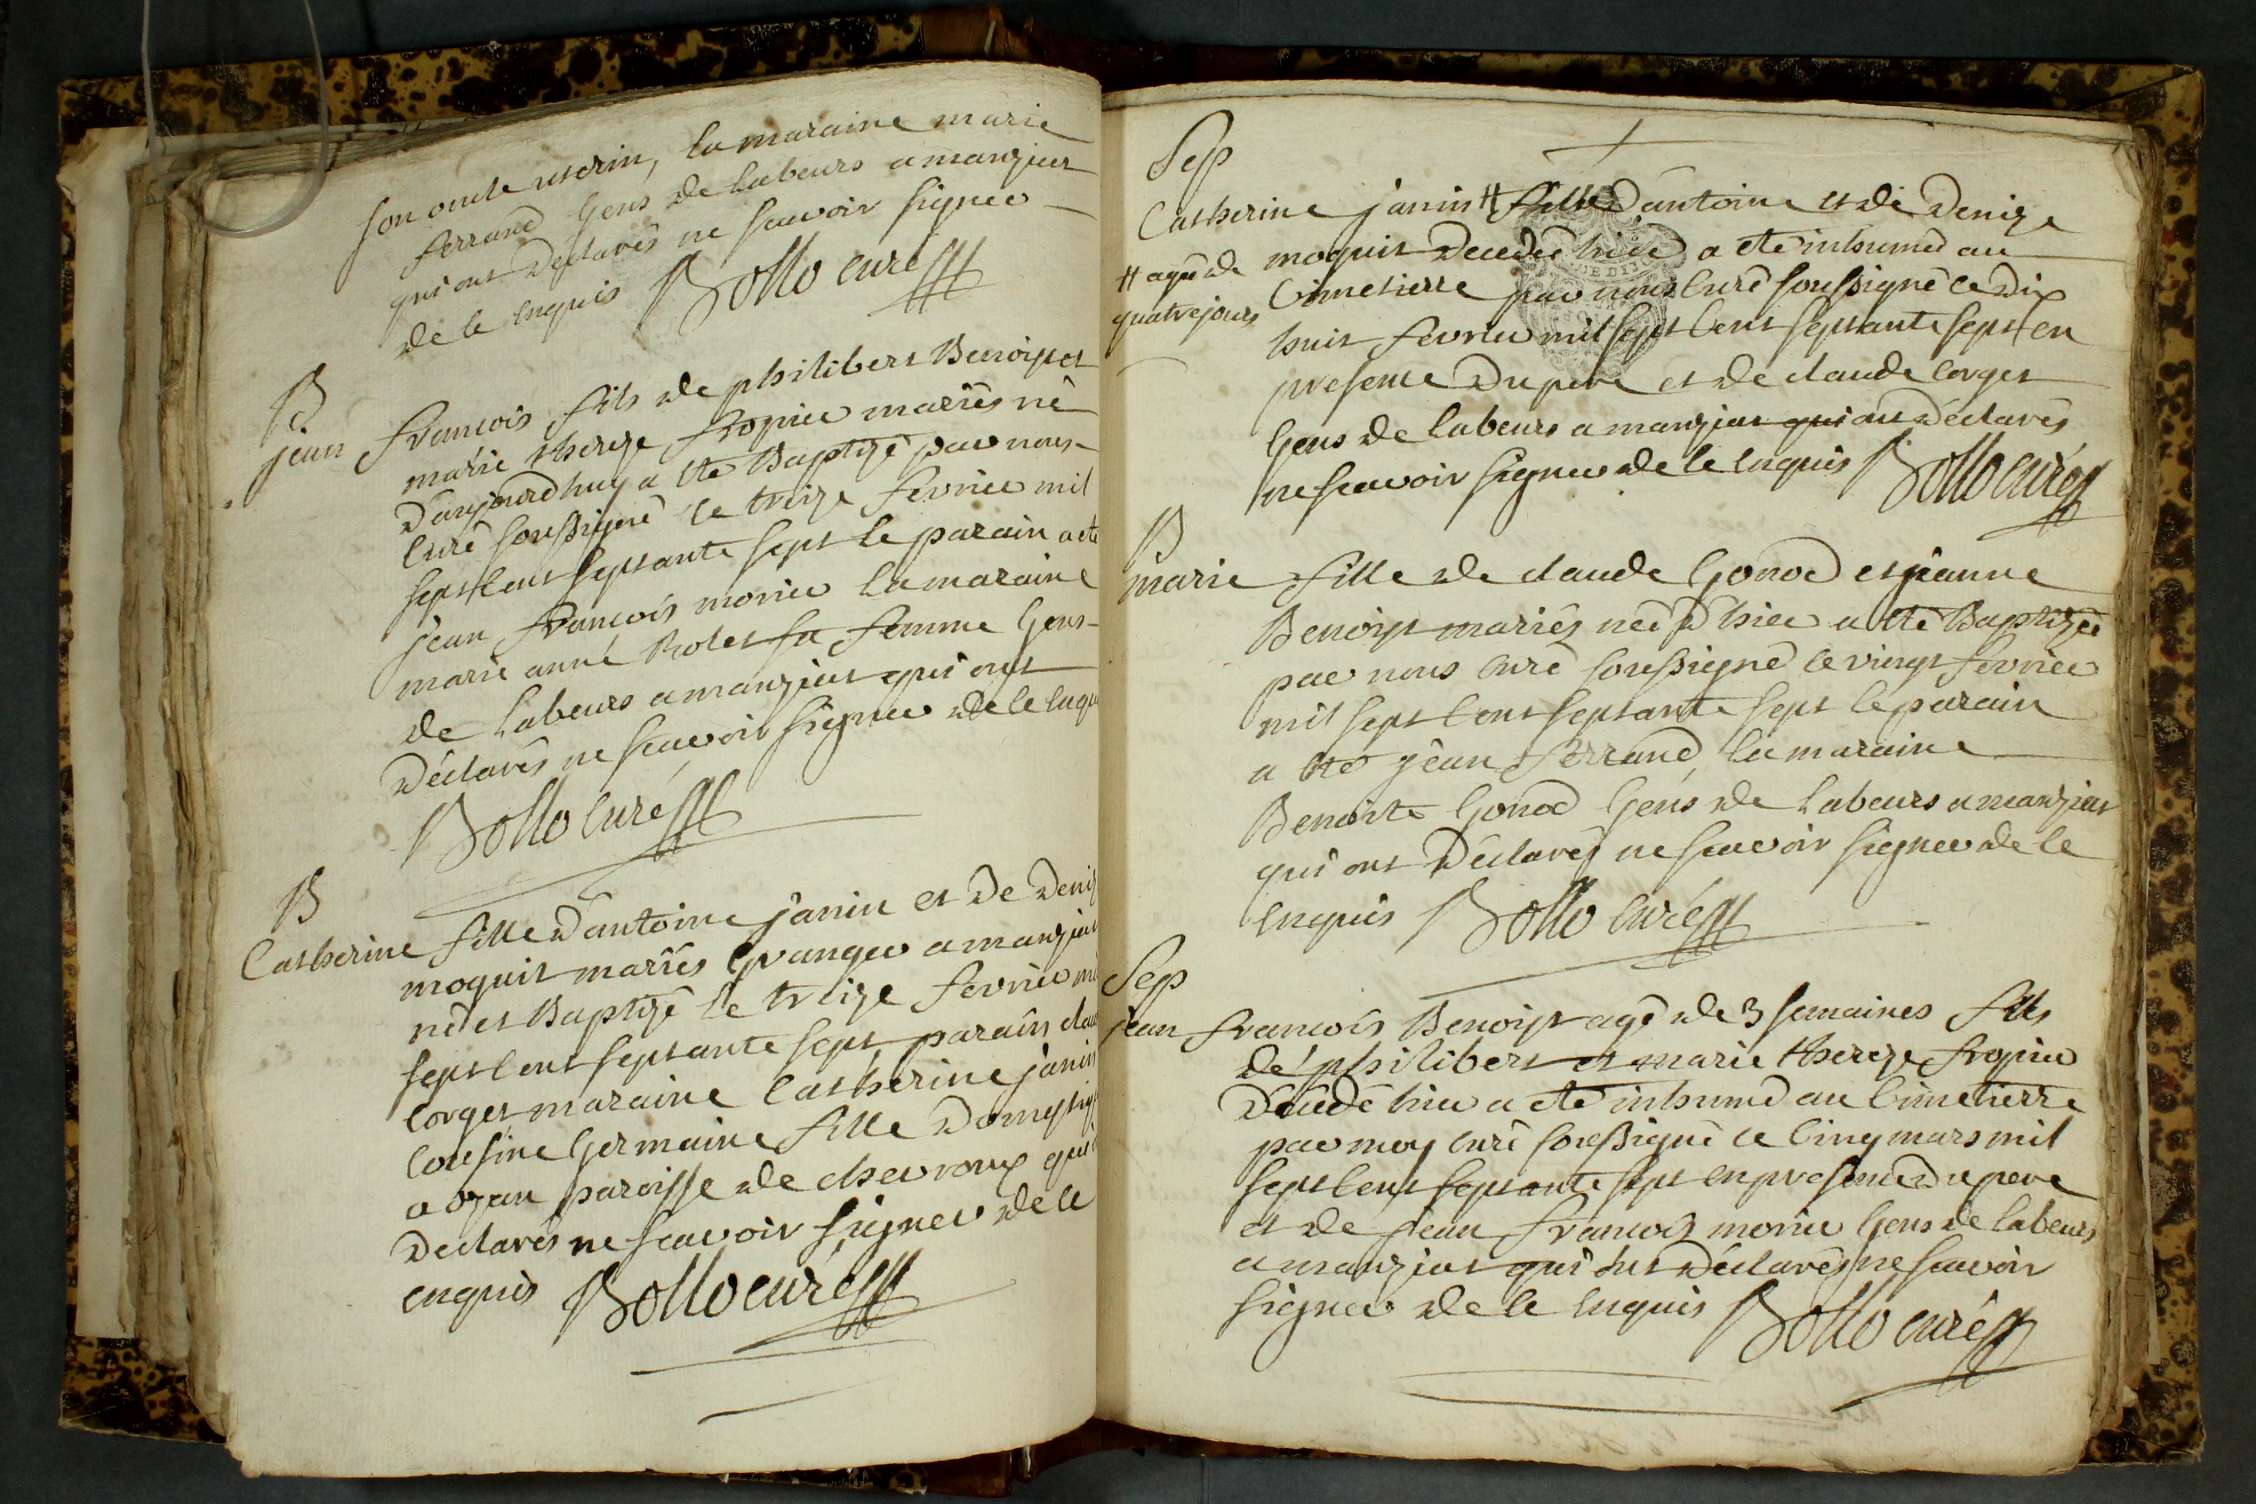 son oncle uterin, la maraine marie
ferrand gens de labeurs a manziat
qui ont declarés ne scavoir signer
de ce enquis Bollo curé
B
jean francois fils de philibert Benoist et
marie thereze fropier mariés né
d'aujourd'huy a eté Baptizé par nous
curé soussigné le treize fevrier mil
sept cent septante sept le parain a eté
jean francois monier la maraine
marie anne Rolet sa femme gens
de labeurs a manziat qui ont
déclarés ne scavoir signer de ce enqu
Bollo curé
B
Catherine fille d'antoine janin et de deniz
moguit mariés granger a manziat
né et Baptizé le treize fevrier mi
sept cent septante sept parain clau
corget maraine Catherine janin
cousine germaine fille domestiq
a ozan paroisse de chevroux qui
declarés ne scavoir signer de ce
enquis Bollo curé
Sep
Catherine janin # fille d'antoine et de denize
# agé de
quatre jours
moguit decedée hier a eté inhumé au
Cimetierre par nous curé soussigné ce dix
huit fevrier mil sept cent septante sept en
presence du pere et de claude corget
gens de labeurs a manziat qui ont déclarés
ne scavoir signer de ce enquis Bollo curé
B
marie fille de claude gonod et jeanne
Benoist mariés née d'hier a eté Baptizée
par nous curé soussigné ce vingt fevrier
mil sept cent septante sept le parain
a eté jean ferrand la maraine
Benoite gonod gens de labeurs a manziat
qui ont déclarés ne scavoir signer de ce
enquis Bollo curé
Sep
jean francois Benoist agé de 3 semaines fils
de philibert et marie thereze fropier
décédé hier a eté inhumé au Cimetierre
par moy curé soussigné ce cinq mars mil
sept cent septante sept en presence du pere
et de jean francois monier gens de labeurs
a manziat qui ont déclarés ne scavoir
signer de ce enquis Bollo curé